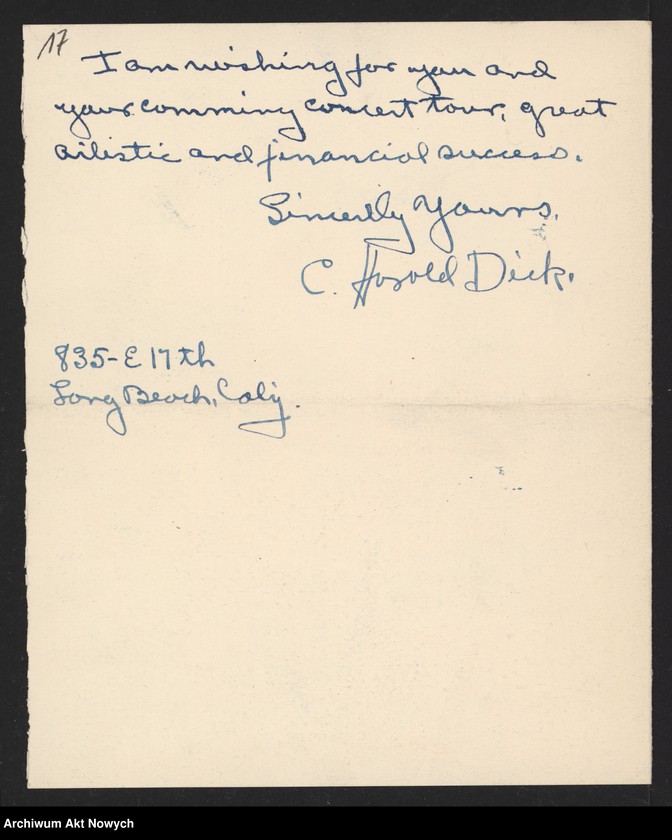 17
I am wishing for you and
your comming concert tour, great
ailistic and financial success.
Sincerlly Yours.
C. Harold Dick.
835-E 17th
Long Beach, Calif.
Archiwum Akt Nowych